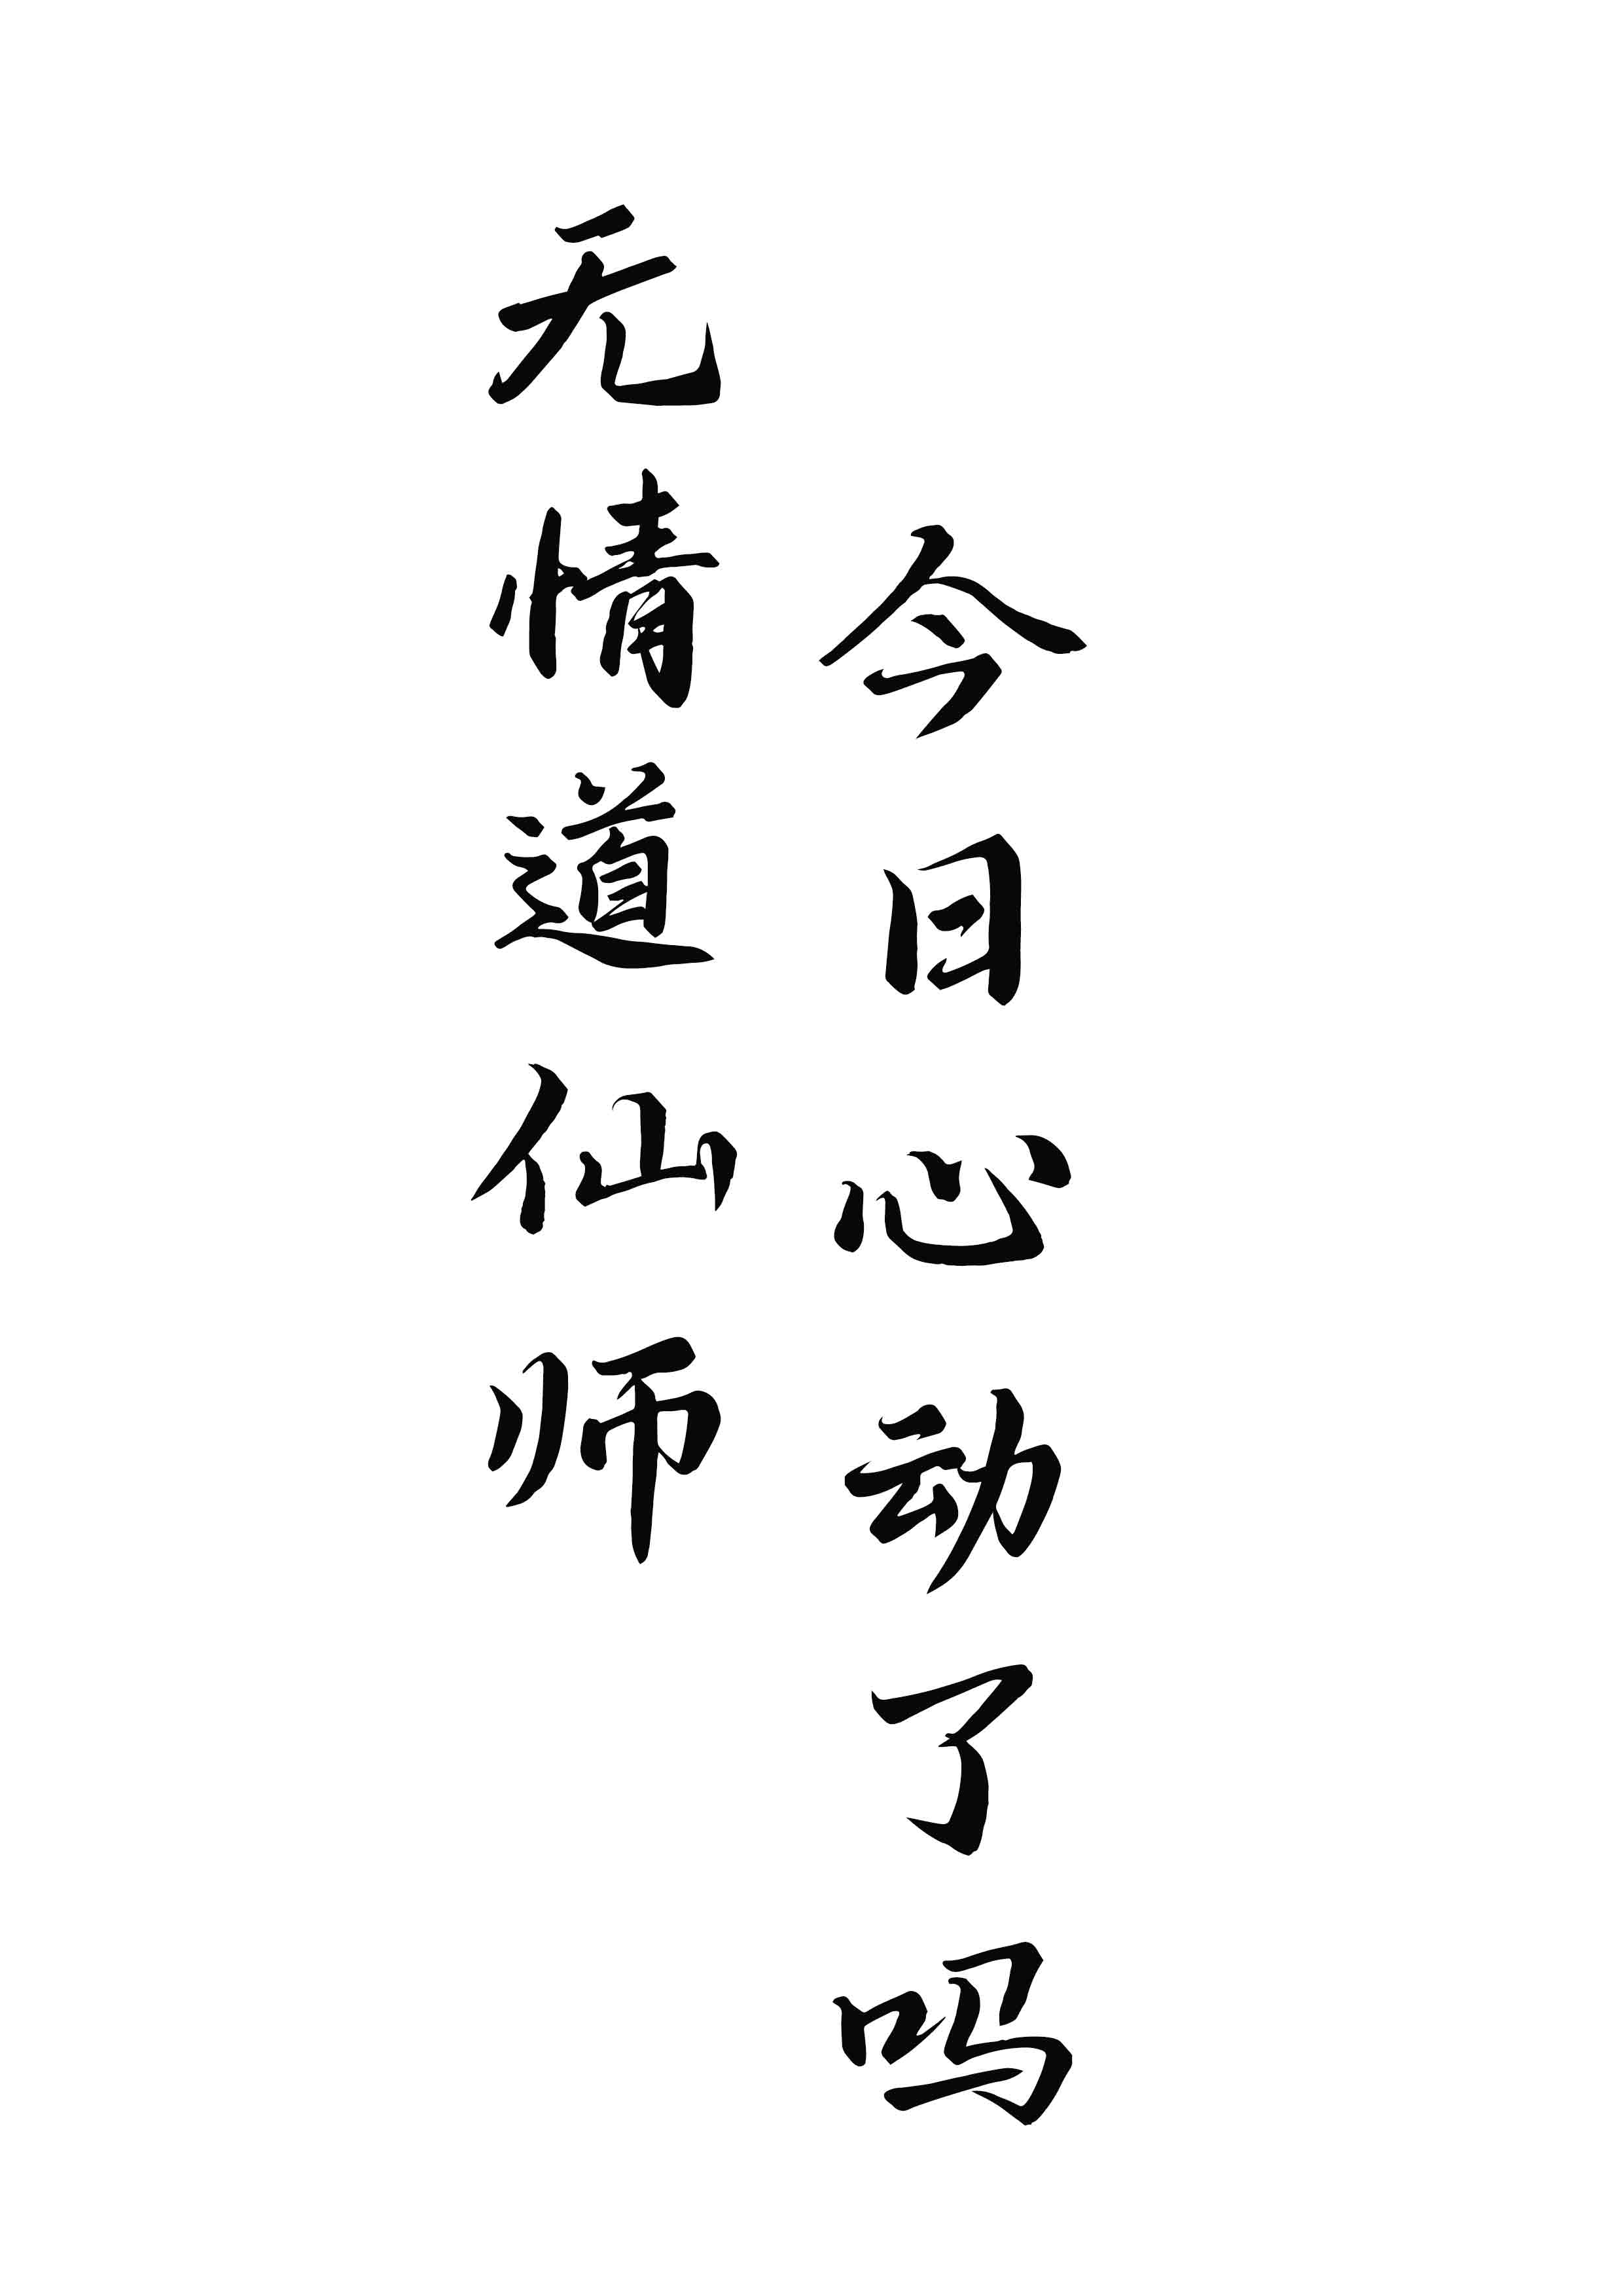 无情道仙师
今日心动了吗